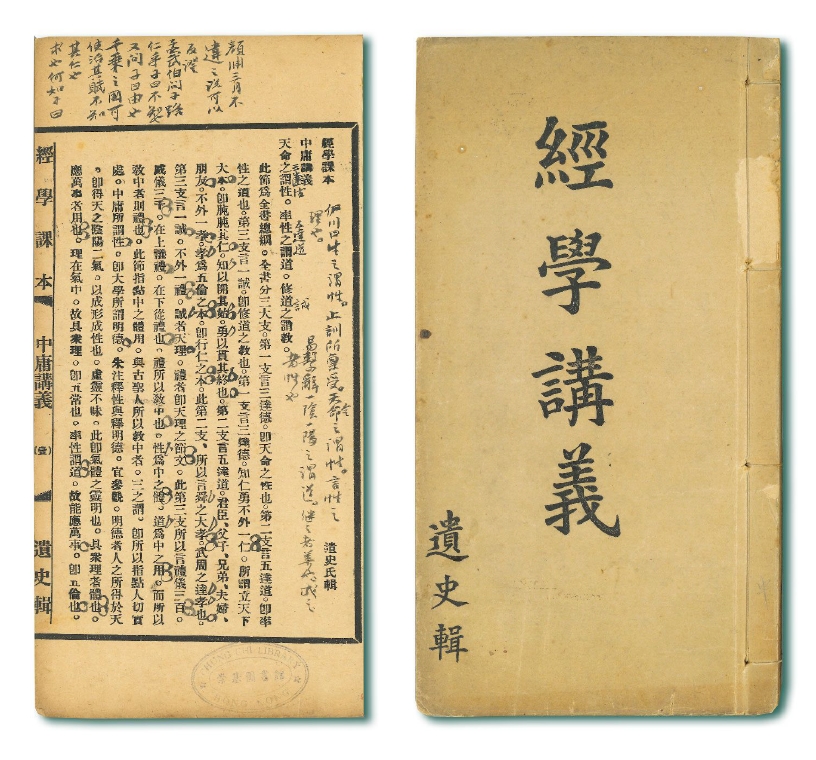 顔淵三月不
違之説可以
反證
孟武伯問子路
仁乎子曰不知也
又問子曰由也
千乘之國可
使治其賦不知
其仁也
求也何如子曰
經學課本
中庸講義
遺史氏輯
天命之謂性。率性之謂道。修道之謂教。
三達德
五達道
誠
伊川曰生之謂性。止訓所稟受。天命之謂性。言性之
理也。
易繫辭一陰一陽之謂道。繼之者善也成之
者性也
此節爲全書總綱。全書分三大支。第一支言三達德。卽天命之性也。第二支言五達道。卽率
性之道也。第三支言一誠。卽修道之教也。第一支言三達德。知仁勇不外一仁。所謂立天下
大本。卽肫肫其仁。知以開其始。勇以貫其終也。第二支言五達道。君臣、父子、兄弟、夫婦、
朋友。不外一孝。孝爲五倫之本。卽行仁之本。此第二支、所以言舜之大孝。武周之達孝也。
第三支言一誠。不外一禮。誠者天理。禮者卽天理之節文。此第三支所以言禮儀三百。
威儀三千。在上議禮。在下從禮也。禮所以敎中也。性爲中之體。道爲中之用。而所以
敎中者則禮也。此節指點中之體用。與古聖人所以敎中者。三之謂。卽所以指點人切實
處。中庸所謂性。卽大學所謂明德。朱注釋性與釋明德。宜參觀。明德者人之所得於天
。卽得天之陰陽二氣。以成形成性也。虛靈不昧。此卽氣體之靈明也。具衆理者體也。
應萬事者用也。理在氣中。故具衆理。卽五常也。率性謂道。故能應萬事。卽五倫也。
經學課本
中庸講義
(壹)
遺史輯
LIBRARY
經學講義
遺史輯